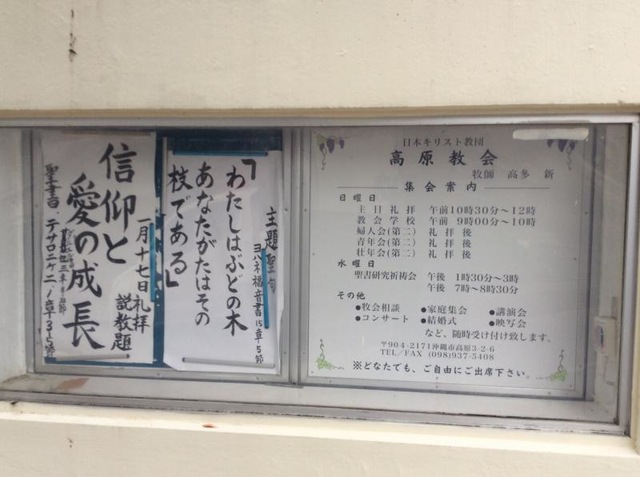 主題聖句
ヨハネ福音書15章5節
「わたしはぶどの木
あなたがたはその
枝である」
一月十七日礼拝
説教題
信仰と
愛の成長
聖書・テサロニケ二ノ一章3〜5節
日本キリスト教団
高原教会
牧師 高多 新
集会案内
日曜日
主日礼拝 午前10時30分〜12時
教会学校 午前 9時00分〜10時
婦人会(第二) 礼拝後
青年会(第二) 礼拝後
壮年会(第二) 礼拝後
水曜日
聖書研究祈祷会 午後 1時30分〜3時
午後 7時〜8時30分
その他
●牧会相談 ●家庭集会 ●講演会
●コンサート ●結婚式 ●映写会
など、随時受け付け致します。
〒904-2171沖縄市高原3-2-6
TEL/FAX (098)937-5408
※どなたでも、ご自由にご出席下さい。